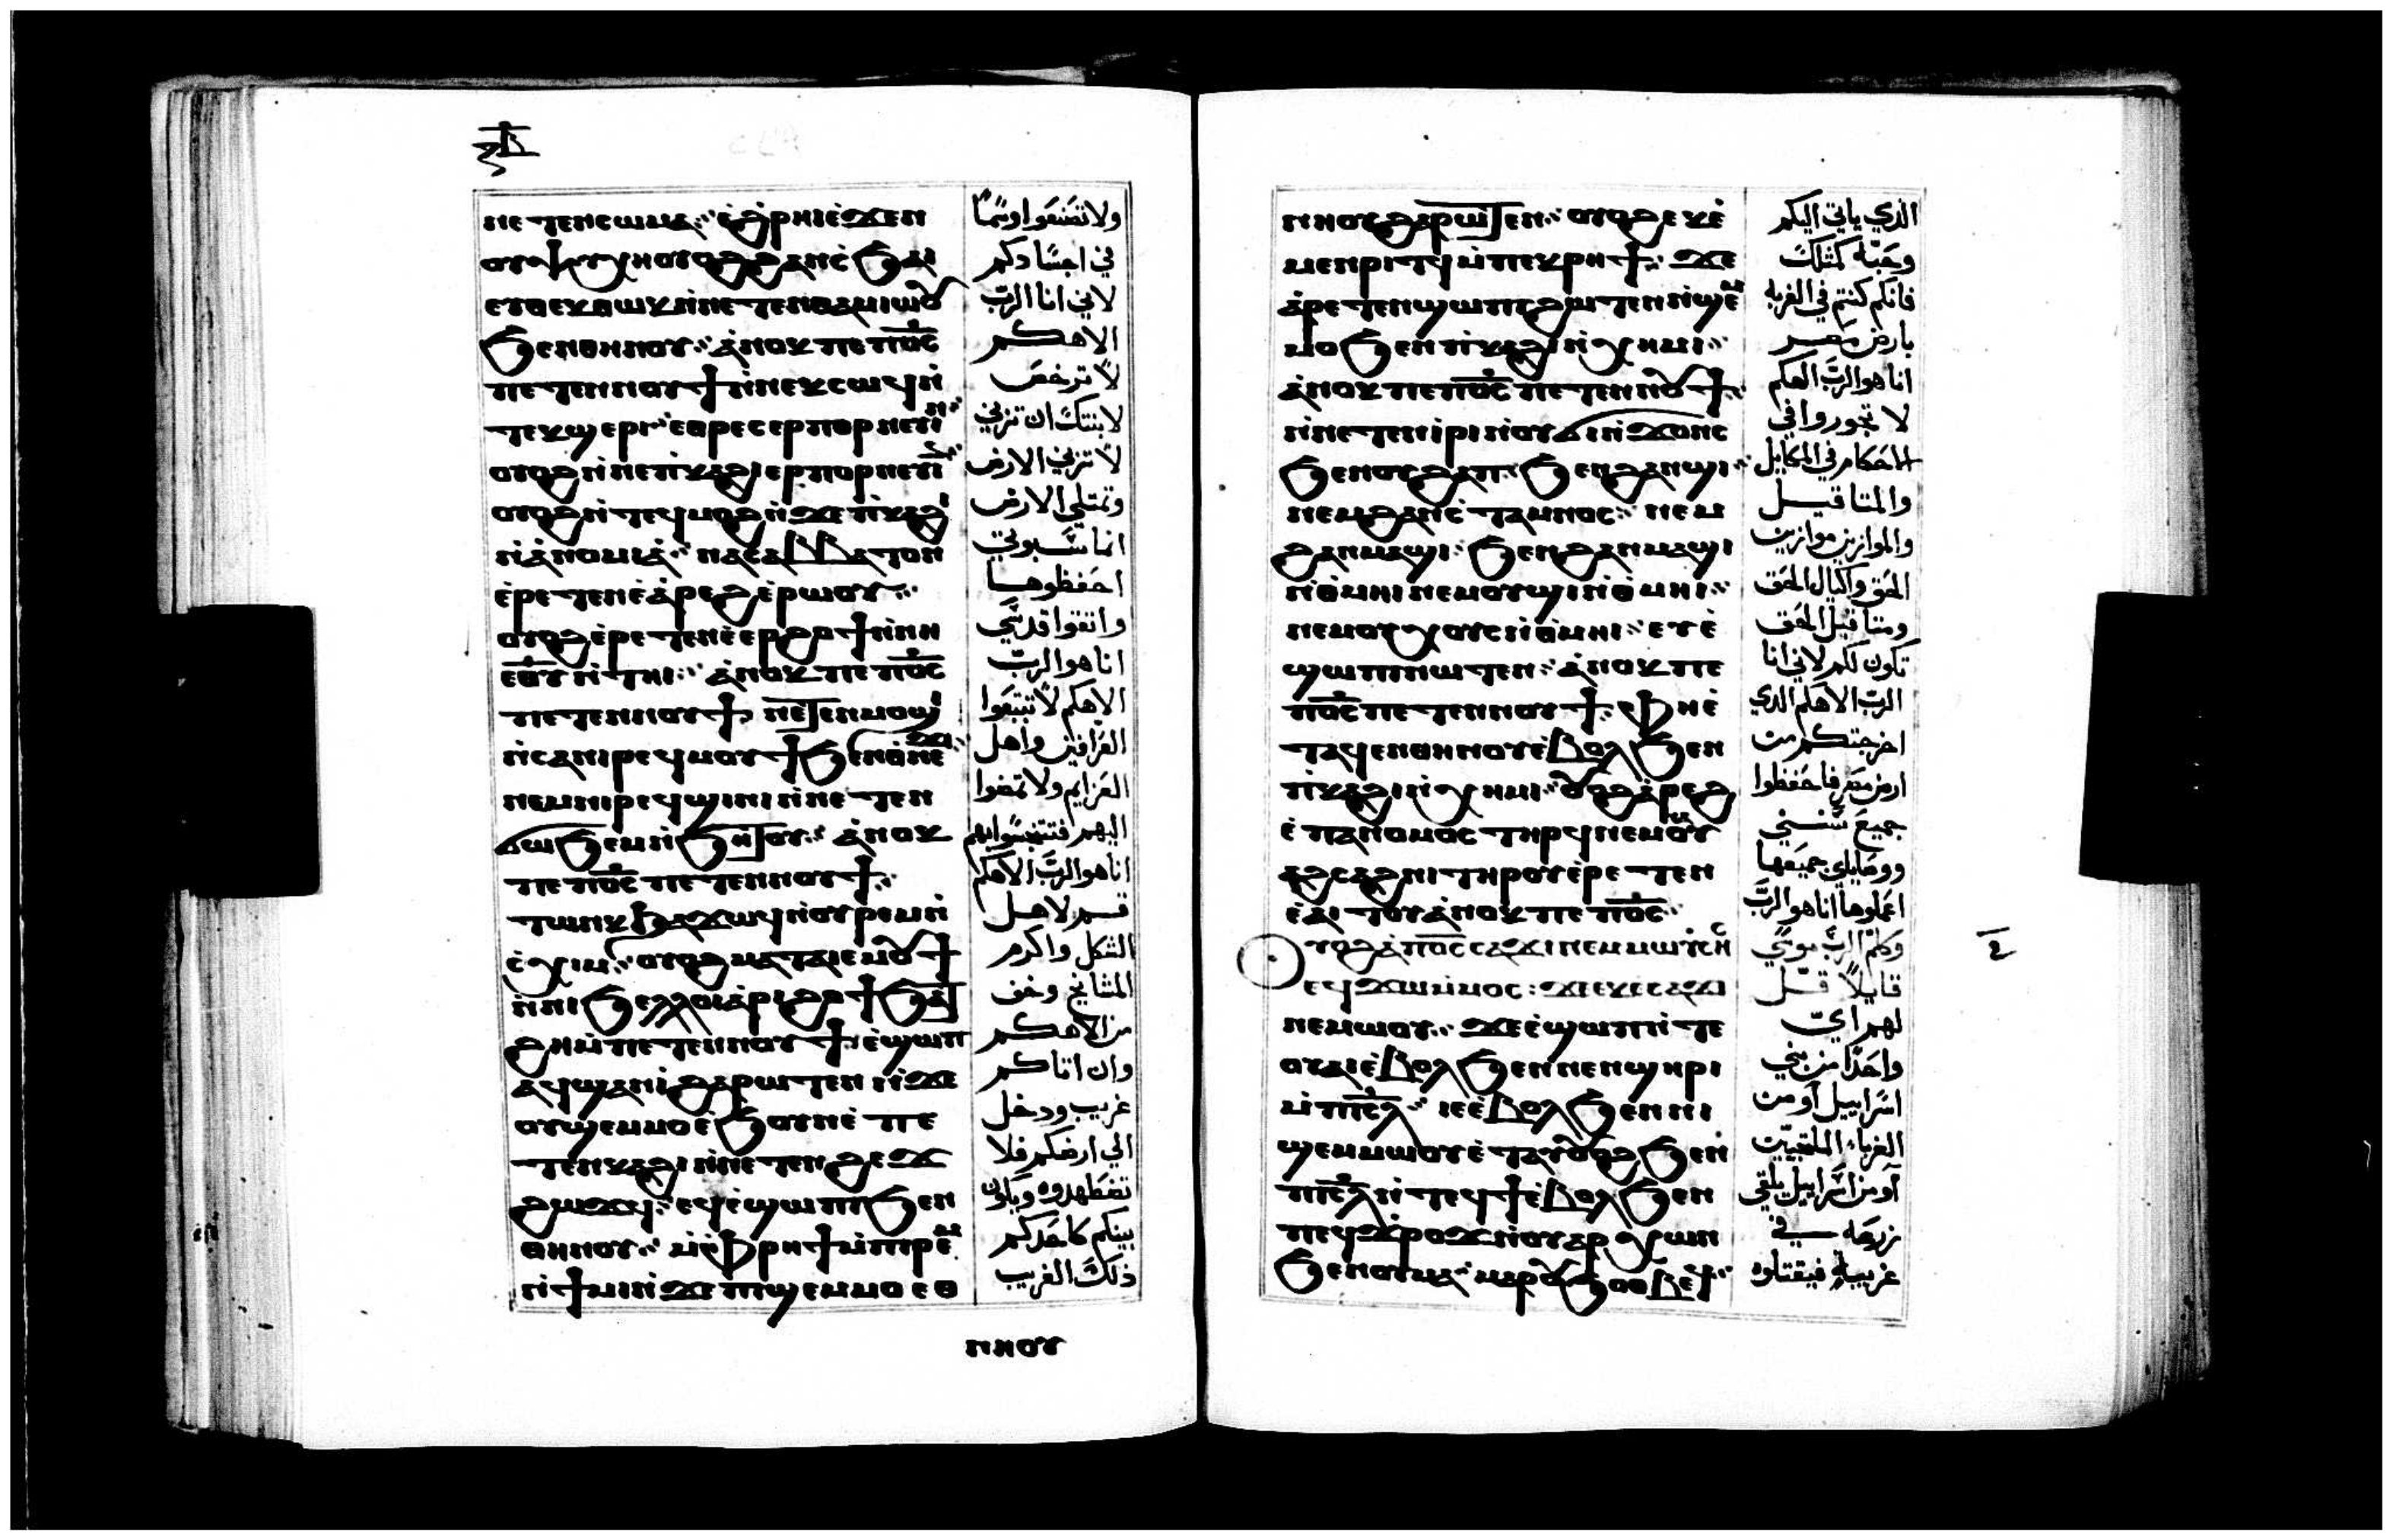 ⲛⲉⲧⲉⲛⲥⲱⲙⲁ ⲉ̀ϩ̀ⲣⲏⲓ ⲉ̀ϫⲉⲛ
ⲟⲩⲯⲩⲭⲏ ⲟⲩⲟϩ ϩⲁⲛⲥ̀ϧⲁⲓ
ⲉⲩⲟⲉⲭⲱⲭ ⲛ̀ⲛⲉⲧⲉⲛⲑⲁⲙⲓⲱⲟⲩ
ϧⲉⲛⲑⲏⲛⲟⲩ ⲁ̀ⲛⲟⲕ ⲡⲉ ⲡⲟ̅ⲥ̅
ⲡⲉⲧⲉⲛⲛⲟⲩϯ ⲛ̀ⲛⲉⲕⲥⲱϥ ⲛ̀
ⲧⲉⲕϣⲉⲣⲓ ⲉ̀ⲑⲣⲉⲥⲉⲣⲡⲟⲣⲛⲉⲩⲓⲛ
ⲟⲩⲟϩ ⲛ̀ⲛⲉⲡⲓⲕⲁϩⲓ ⲉⲣⲡⲟⲣⲛⲉⲩⲓⲛ
ⲟⲩⲟϩ ⲛ̀ⲧⲉϥⲙⲟϩ ⲛ̀ϫⲉ ⲡⲓⲕⲁϩⲓ
ⲛ̀ⲁ̀ⲛⲟⲙⲓⲁ̀ ⲛⲁⲥⲁⲃⲃⲁⲧⲟⲛ
ⲉ̀ⲣⲉⲧⲉⲛⲉ̀ⲁ̀ⲣⲉϩ ⲉ̀ⲣⲱⲟⲩ
ⲟⲩⲟϩ ⲉ̀ⲣⲉⲧⲉⲛⲉ̀ⲉⲣϩⲟϯ ⲛ̀ⲛⲏ
ⲉ̅ⲑ̅ⲩ̅ ⲛ̀ⲧⲏⲓ ⲁ̀ⲛⲟⲕ ⲡⲉ ⲡⲟ̅ⲥ̅
ⲡⲉⲧⲉⲛⲛⲟⲩϯ ⲛⲉⲧⲉⲛⲙⲟϣⲓ
ⲛ̀ⲥⲁ ⲛⲓⲣⲉϥⲙⲟⲩϯ ϧⲉⲛ ⲑ̀ⲛⲉϫⲓ
ⲛⲉⲙ ⲛⲓⲣⲉϥϣⲓⲛⲓ ⲛ̀ⲛⲉⲧⲉⲛ
ϭⲱϧⲉⲙ ⲛ̀ϧⲏⲧⲟⲩ ⲁ̀ⲛⲟⲕ
ⲡⲉ ⲡⲟ̅ⲥ̅ ⲡⲉⲧⲉⲛⲛⲟⲩϯ
ⲧⲱⲛⲕ ϧⲁϫⲱϥ ⲛ̀ⲟⲩⲣⲉⲙⲛ̀
ⲥ̀ⲭⲓⲙ ⲟⲩⲟϩ ⲙⲁⲧⲁⲓⲉⲙⲟⲩϯ
ⲛ̀ⲛⲓϧⲉⲗⲗⲟⲓ ⲁ̀ⲣⲓϩⲟϯ ϧⲁⲧ
ϩⲏ ⲙ̀ⲡⲉⲧⲉⲛⲛⲟⲩϯ ⲉ̀ϣⲱⲡ
ⲁϥϣⲁⲛⲓ̀ ϩⲁⲣⲱⲧⲉⲛ ⲛ̀ϫⲉ
ⲟⲩϣⲉⲙⲙⲟ ⲉ̀ϧⲟⲩⲛ ⲉ̀ⲡⲉ
ⲧⲉⲛⲕⲁϩⲓ ⲛ̀ⲛⲉⲧⲉⲛϩⲉϫ
ϩⲱϫϥ ⲉϥⲉ̀ϣⲱⲡⲓ ϧⲉⲛ
ⲑⲏⲛⲟⲩ ⲙ̀ⲫ̀ⲣⲏϯ ⲙ̀ⲡⲓⲣⲉⲙ
ⲛ̀ϯⲙⲓ ⲛ̀ϫⲉ ⲡⲓϣⲉⲙⲙⲟ ⲉⲑ
ⲛⲏⲟⲩ
ولا تصنعوا وشمًا
في اجسادكم
لاني انا الرب
الاهكم
لا ترخص
لابنتك ان تزني
لا تزني الارض
وتمتلي الارض
اثما سبوتي
احفظوها
واتقوا قدسي
انا هو الرب
الاهكم لا تتبعوا
العرافين واهل
العزايم ولا تمضوا
اليهم فتتنجسوا بهم
انا هو الرب الاهكم
قم لاهل
الثكل واكرم
المشايخ وخف
من الاهكم
وان اتاكم
غريب ودخل
الي ارضكم فلا
تضطهدوه ويكون
بينكم كاحدكم
ذلك الغريب
ⲛⲏⲟⲩ ϩⲁⲣⲱⲧⲉⲛ ⲟⲩⲟϩ ⲉⲕⲉ̀
ⲙⲉⲛⲣⲓⲧϥ ⲙ̀ⲡⲉⲕⲣⲏϯ ϫⲉ
ⲁ̀ⲣⲉⲧⲉⲛϣⲱⲡⲓ ϩⲱⲧⲉⲛ ⲛ̀ϣⲉⲙ
ⲙⲟ ϧⲉⲛ ⲡⲓⲕⲁϩⲓ ⲛ̀ⲭⲏⲙⲓ
ⲁ̀ⲛⲟⲕ ⲡⲉ ⲡⲟ̅ⲥ̅ ⲡⲉⲧⲉⲛⲛⲟⲩϯ
ⲛ̀ⲛⲉⲧⲉⲛⲓ̀ⲣⲓ ⲛ̀ⲟⲩϭⲓⲛ̀ϫⲟⲛⲥ
ϧⲉⲛ ⲟⲩϩⲁⲡ ϧⲉⲛ ϩⲁⲛϣⲓ
ⲛⲉⲙ ϩⲁⲛⲥ̀ⲧⲁⲙⲟⲥ ⲛⲉⲙ
ϩⲁⲛⲙⲁϣⲓ ϧⲉⲛ ϩⲁⲛⲙⲁϣⲓ
ⲛ̀ⲑ̀ⲙⲏⲓ ⲛⲉⲙ ⲟⲩϣⲓ ⲛ̀ⲑ̀ⲙⲏⲓ
ⲛⲉⲙ ⲟⲩⲭⲟⲩⲥ ⲛ̀ⲑ̀ⲙⲏⲓ ⲉⲩⲉ̀
ϣⲱⲡⲓ ⲛⲱⲧⲉⲛ ⲁ̀ⲛⲟⲕ ⲡⲉ
ⲡⲟ̅ⲥ̅ ⲡⲉⲧⲉⲛⲛⲟⲩϯ ⲫⲏ ⲉ̀
ⲧⲁϥⲉⲛⲑⲏⲛⲟⲩ ⲉ̀ⲃⲟⲗ ϧⲉⲛ
ⲡ̀ⲕⲁϩⲓ ⲛ̀ⲭⲏⲙⲓ ⲟⲩⲟϩ ⲁ̀ⲣⲉϩ
ⲉ̀ⲡⲁⲛⲟⲙⲟⲥ ⲧⲏⲣϥ ⲛⲉⲙ ⲟⲩ
ⲁϩⲥⲁϩⲛⲓ ⲧⲏⲣⲟⲩ ⲉ̀ⲣⲉⲧⲉⲛ
ⲉ̀ⲁⲓⲧⲟⲩ ⲁ̀ⲛⲟⲕ ⲡⲉ ⲡⲟ̅ⲥ̅
ⲟⲩⲟϩ ⲁ̀ ⲡⲟ̅ⲥ̅ ⲥⲁϫⲓ ⲛⲉⲙ ⲙⲱⲩⲥⲏⲥ
ⲉϥϫⲱ ⲙ̀ⲙⲟⲥ ϫⲉ ⲉⲕⲉⲥⲁϫⲓ
ⲛⲉⲙⲱⲟⲩ ϫⲉ ⲉ̀ϣⲱⲡ ⲛ̀ⲧⲉ
ⲟⲩⲁⲓ ⲉ̀ⲃⲟⲗ ϧⲉⲛ ⲛⲉⲛϣⲏⲣⲓ
ⲙ̀ⲡⲓ̅ⲥ̅ⲗ̅ ⲓⲉ ⲉ̀ⲃⲟⲗ ϧⲉⲛ ⲛⲓ
ϣⲉⲙⲙⲱⲟⲩ ⲉ̀ⲧⲁⲩⲟⲩⲟϩ ϧⲉⲛ
ⲡⲓ̅ⲥ̅ⲗ̅ ⲛ̀ⲧⲉϥϯ ⲉ̀ⲃⲟⲗ ϧⲉⲛ
ⲡⲉϥϫ̀ⲣⲟϫ ⲛ̀ⲟⲩⲁⲣⲭⲱⲛ
ϧⲉⲛ ⲟⲩⲙⲟⲩ ⲙⲁⲣⲟⲩϧⲟⲑⲃⲉϥ
الذي ياتي اليكم
وحبه كمثلك
فانكم كنتم في الغربه
بارض مصر
انا هو الرب الهكم
لا تجوروا في
الاحكام في المكاييل
والمثاقيل
والموازين موازين
الحق واكيال الحق
ومثاقيل الحق
تكون لكم لاني انا
الرب الاهكم الذي
اخرجتكم من
ارض مصر فاحفظوا
جميع سنني
ووصاياي جميعها
اعملوها انا هو الرب
وكلم الرب موسي
قايلًا قل
لهم اي
واحدًا من بني
اسراييل او من
الغرباء الملتجيين
او من اسراييل يلقي
زرعه في
غريبه فيقتلوه